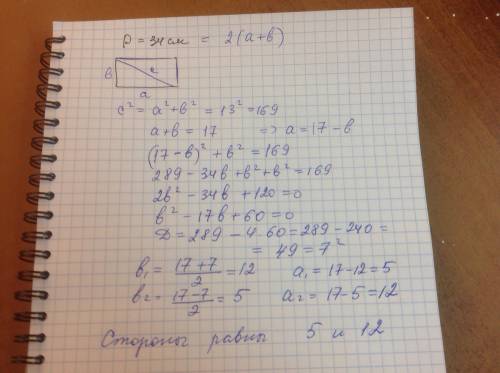 P = 34 см = 2(a+в)
в c
a
c² = a² + в² = 13² = 169
a+в = 17 => a = 17 - в
(17 - в)² + в² = 169
289 - 34в + в² + в² = 169
2в² - 34в + 120 = 0
в² - 17в + 60 = 0
Д = 289 - 4·60 = 289 - 240 =
= 49 = 7²
в₁ = (17+7)/2 = 12 a₁ = 17-12 = 5
в₂ = (17-7)/2 = 5 a₂ = 17-5 = 12
Стороны равны 5 и 12